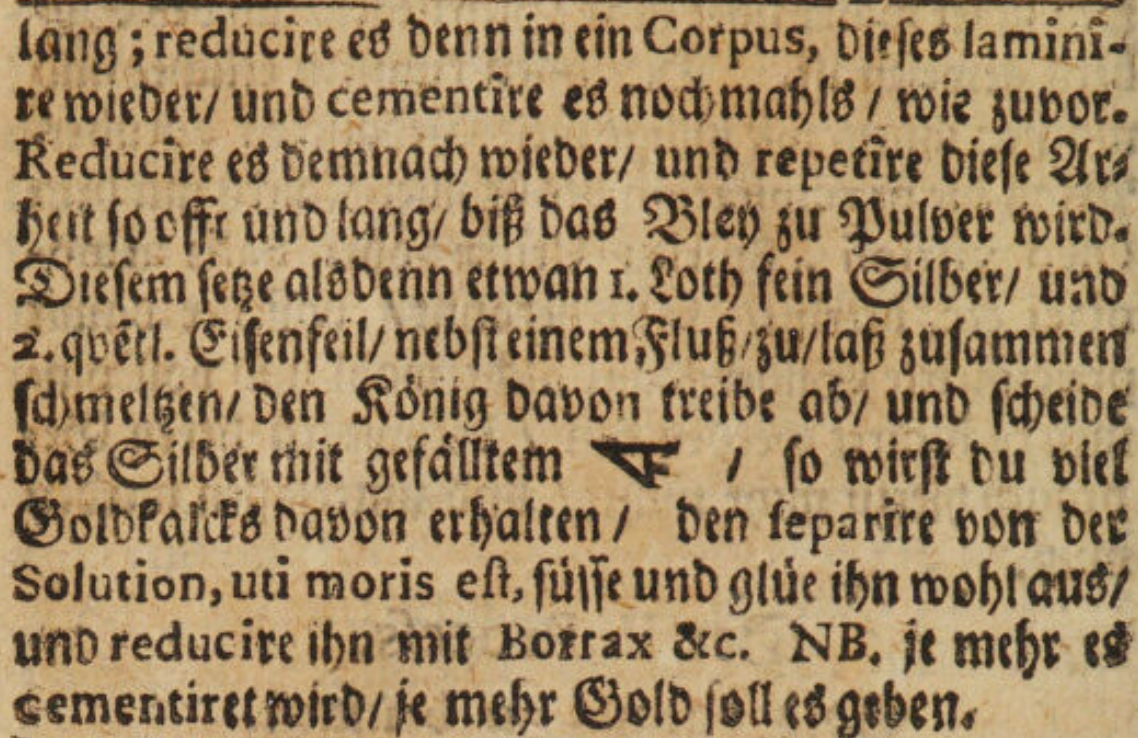 lang; reducire es denn in ein Corpus, dieses lamini-
re wieder/ und cementire es nochmahls / wie zuvor.
Reducire es demnach wieder/ und repetire diese Ar-
beit so offt und lang/ biß das Bley zu Pulver wird.
Diesem setze alsdenn etwan 1. Loth fein Silber/ und
2. qvētl. Eisenfeil/ nebst einem Fluß/ zu/ laß zusammen
schmeltzen/ den König davon treibe ab/ und scheide
das Silber mit gefälltem 🜁 / so wirst du viel
Goldkalcks davon erhalten / den separire von der
Solution, uti moris est, süsse und glüe ihn wohl aus/
und reducire ihn mit Borrax &c. NB. je mehr es
cementiret wird/ je mehr Gold soll es geben.